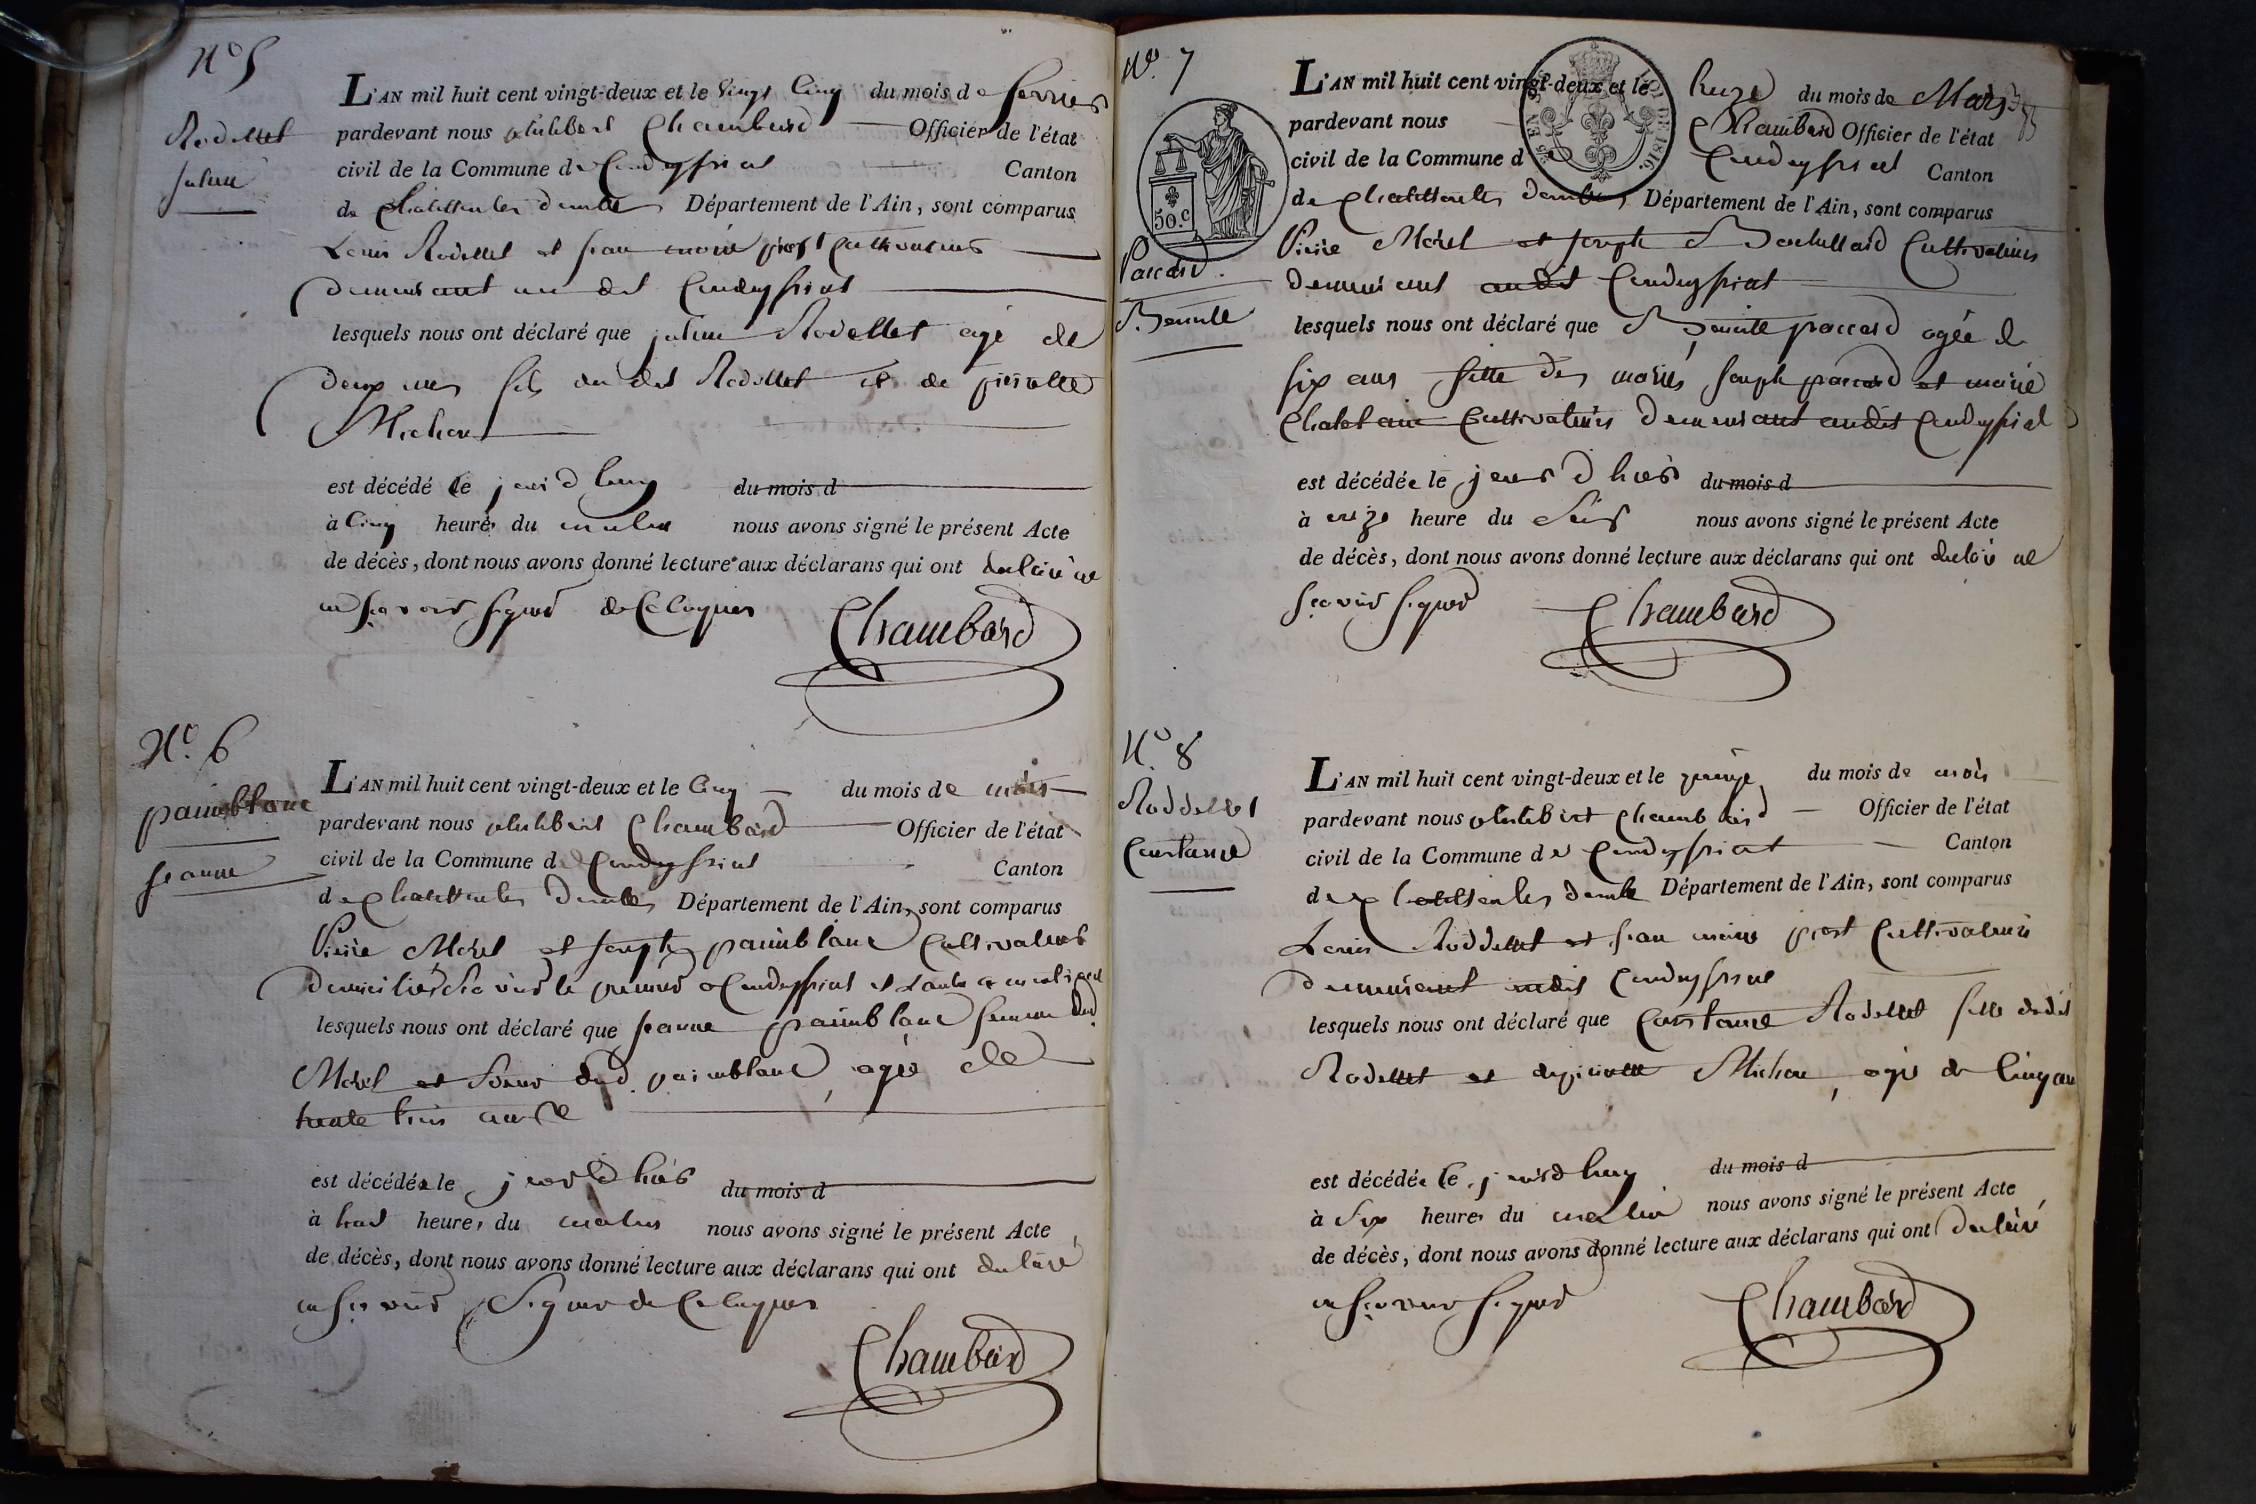 N.º 5
Rodellet
L'AN mil huit cent vingt-deux et le vingt cinq du mois de fevrier
pardevant nous philibert Chambard Officier de l'état
civil de la Commune de Condeyssiat Canton
de Chatillon les dombes Département de l'Ain, sont comparus
Louis Rodellet et jean marie prost cultivateurs
demeurant au dit Condeyssiat
lesquels nous ont déclaré que Rodellet agé de
deux ans fils du dit Rodellet et de pierrette
Michon
est décédé le jourd huy du mois d
à cinq heures du matin nous avons signé le présent Acte
de décès, dont nous avons donné lecture aux déclarans qui ont declaré ne
scavoir signer de ce enquis
Chambard
N.º 6
paimblanc
jeanne
L'AN mil huit cent vingt-deux et le cinq du mois de mars
pardevant nous philibert Chambard Officier de l'état
civil de la Commune de Condeyssiat Canton
de Chatillon les dombes Département de l'Ain, sont comparus
Pierre Morel et joseph paimblanc cultivateurs
domiciliés scavoir le premier a Condeyssiat et l'autre a
lesquels nous ont déclaré que jeanne paimblanc femme dud.
Morel et soeur dud. paimblanc, agée de
trente trois ans
est décédée le jourd huis du mois d
à heures du matin nous avons signé le présent Acte
de décès, dont nous avons donné lecture aux déclarans qui ont declaré
ne scavoir signer de ce enquis
Chambard
N.º 7
25 EN SUS
LOI DE 1816.
50.c
Paccard
Benoite
L'AN mil huit cent vingt-deux et le treize du mois de Mars
pardevant nous Chambard Officier de l'état
civil de la Commune d Condeyssiat Canton
de Chatillon les dombes, Département de l'Ain, sont comparus
Pierre Morel et joseph cultivateurs
demeurant audit Condeyssiat
lesquels nous ont déclaré que Benoite paccard agée de
six ans fille des mariés joseph paccard et marie
Chatelain cultivateurs demeurant audit Condeyssiat
est décédée le jour d hier du mois d
à onze heure du soir nous avons signé le présent Acte
de décès, dont nous avons donné lecture aux déclarans qui ont declaré ne
scavoir signer
Chambard
N.º 8
Roddellet
Constance
L'AN mil huit cent vingt-deux et le quinze du mois de mars
pardevant nous philibert Chambard Officier de l'état
civil de la Commune de Condeyssiat Canton
de Chatillon les dombe Département de l'Ain, sont comparus
Louis Roddellet et jean marie prost cultivateurs
demeurant audit Condeyssiat
lesquels nous ont déclaré que Constance Rodellet fille dudit
Rodellet et de pierrette Michon, agée de cinq ans
est décédée le jourd huy du mois d
à six heures du matin nous avons signé le présent Acte
de décès, dont nous avons donné lecture aux déclarans qui ont declaré
ne scavoir signer
Chambard